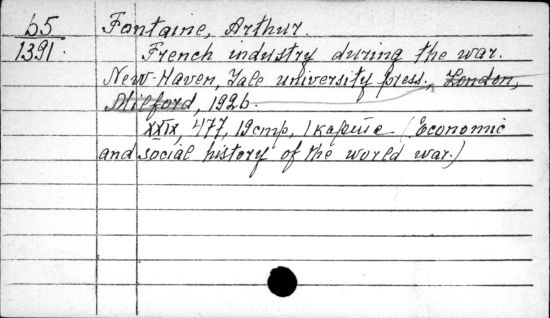 б5 Fontaine, Arthur.
1391. French industry during the war.
New-Haven, Yale university press., London,
Milford, 1926.
XXIX, 477, 19 стр., 1 картa (Economic
and social history of the world war.)